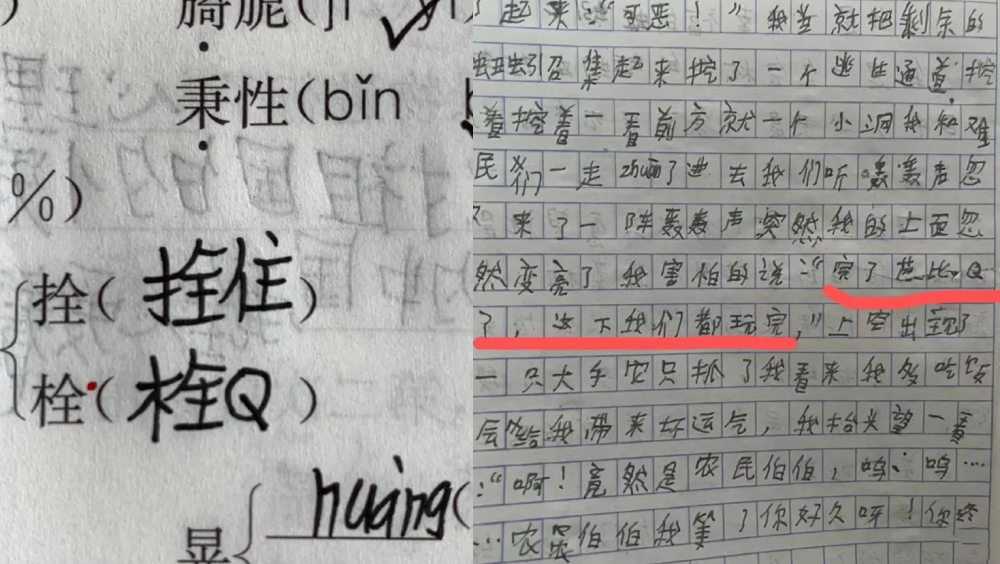 秉性(bǐn
%)
拴(拴住)
栓(栓Q)
huáng(
晃
起来:“可恶!”我当就把剩余的
召集起来挖了一个逃生通道,挖
着挖着一看前方就一个小洞我和难
民们一走进去我们听轰轰声忽
来了一阵轰轰声突然我的上面忽
然变亮了我害怕的说:“完了芭比Q
了,这下我们都玩完,”上空出现了
一只大手它只抓了我看来我多吃饭
给我带来坏运气,我抬头望一看
:“啊!竟然是农民伯伯,呜、呜…
…农农伯伯我等了你好久呀!你终